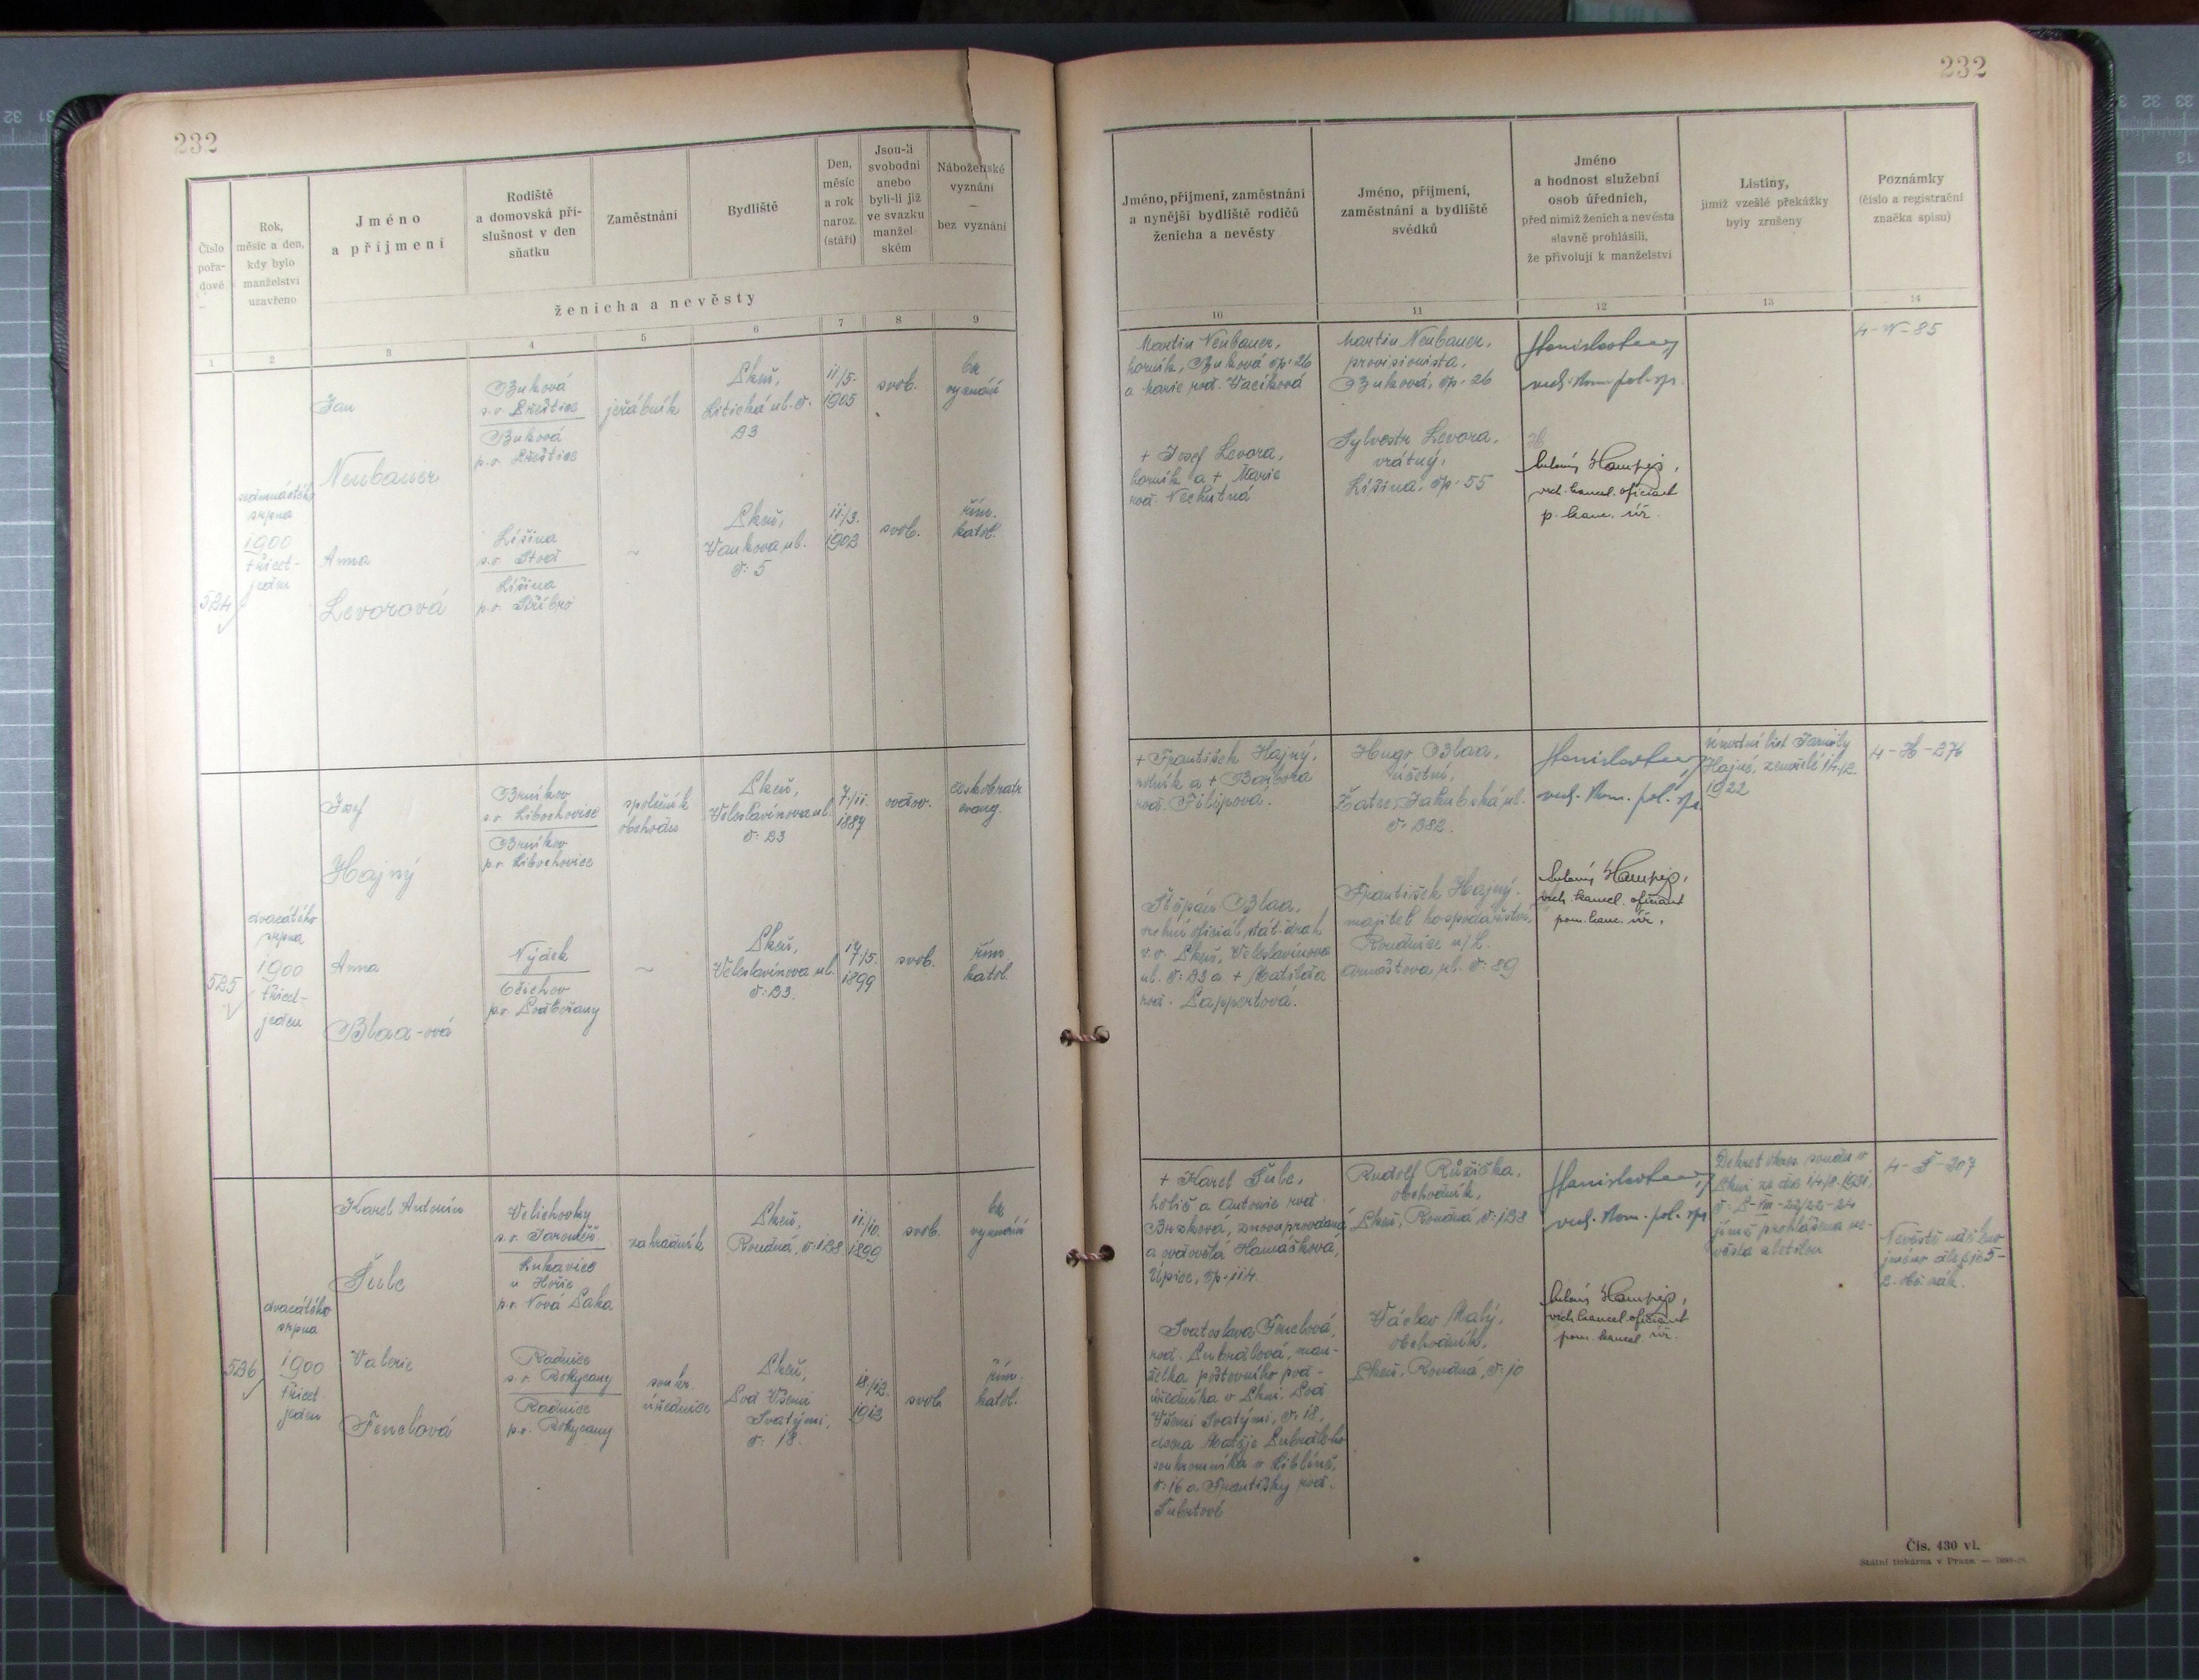 232
Číslo
pořa-
dové
Rok,
měsíc a den,
kdy bylo
manželství
uzavřeno
Jméno
a příjmení
Rodiště
a domovská pří-
slušnost v den
sňatku
Zaměstnání
Bydliště
Den,
měsíc
a rok
naroz.
(stáří)
Jsou-li
svobodni
anebo
byli-li již
ve svazku
manžel-
ském
Náboženské
vyznání
—
bez vyznání
ženicha a nevěsty
1
2
3
4
5
6
7
8
9
524
srpna
1900
třicet-
jeden
Jan
Neubauer
Buková
s.o. Přeštice
Buková
p.o. Přeštice
jeřábník
Plzeň,
Litická ul. č.
23
11/5.
1905
svob.
bez
vyznání
Anna
Levorová
Líšina
s.o. Stod
Líšina
p.o. Stříbro
~
Plzeň,
Vaňkova ul.
č. 5
11/3.
1902
svob.
řím.
katol.
525
dvacátého
srpna
1900
třicet-
jeden
Josef
Hajný
Brníkov
s.o. Libochovice
Brníkov
p.o. Libochovice
společník
obchodu
Plzeň,
Veleslavínova ul.
č. 23
7/11.
1887
ovdov.
českobratr.
evang.
Anna
Blaa-ová
Nýdek
Očichov
p.o. Podbořany
~
Plzeň,
Veleslavínova ul.
č. 23.
17/5.
1899
svob.
řím.
katol.
526
dvacátého
srpna
1900
třicet
jeden
Karel Antonín
Šulc
Velichovky
s.o. Jaroměř
Lukavice
u Hořic
p.o. Nová Paka
zahradník
Plzeň,
Roudná, č. 128
11./10.
1899
svob.
bez
vyznání
Valerie
Fenclová
Radnice
s.o. Rokycany
Radnice
p.o. Rokycany
soukr.
úřednice
Plzeň,
Pod Všemi
Svatými,
č. 18.
18/12.
1912
svob.
řím.
katol.
232
Jméno, příjmení, zaměstnání
a nynější bydliště rodičů
ženicha a nevěsty
Jméno, příjmení,
zaměstnání a bydliště
svědků
Jméno
a hodnost služební
osob úředních,
před nimiž ženich a nevěsta
slavně prohlásili,
že přivolují k manželství
Listiny,
jimiž vzešlé překážky
byly zrušeny
Poznámky
(číslo a registrační
značka spisu)
10
11
12
13
14
Martin Neubauer,
horník, Buková čp. 26
a Marie roz. Vacíková
Martin Neubauer,
provisionista,
Buková, čp. 26
vrch. kom. pol. spr.
4-N-85
+ Josef Levora,
horník a + Marie
roz. Nechutná
Sylvestr Levora,
vrátný,
Líšina, čp. 55
vrch. kancel. oficiant
p. kanc. úř.
+ František Hajný,
rolník a + Barbora
roz. Filipova.
Hugo Blaa,
účetní,
Žatec, Jakubská ul.
č. 282.
vrch. kom. pol. spr.
úmrtní list Jarmily
Hajné, zemřelé 14/2.
1922
4-H-276
Štěpán Blaa,
vrchní oficiál stát. drah
v.v. Plzeň, Veleslavínova
ul. č. 23 a + Matilda
roz. Lappertová.
František Hajný,
majitel hospodářství,
Roudnice n/L.
Arnoštova ul. č. 89
vrch. kancel. oficiant
pom. kanc. úř.
+ Karel Šulc,
holič a Antonie roz.
Brzkova, znovuprovdaná
a ovdovělá Hamáčková,
Úpice, čp. 114.
Rudolf Růžička,
obchodník,
Plzeň, Roudná, č. 128
vrch. kom. pol. spr.
Dekret okres. soudu v
Plzni ze dne 14/8. 1931,
č. P-VIII-22/22-24
jímž prohlášena ne-
věsta zletilou
4-Š-207
Nevěstě náleží
jméno dle § 165-
2. ob. zák.
Svatoslava Fenclová,
roz. Pubrdlová, man-
želka poštovního pod-
úředníka v Plzni, Pod
Všemi Svatými, č. 18,
dcera Matěje Pubrdleho
soukromníka v Liblíně,
č. 16 a Františky roz.
Šubrtové
Václav Malý,
obchodník,
Plzeň, Roudná, č. 10
vrch. kancel. oficiant
pom. kancel. úř.
Čís. 430 vl.
Státní tiskárna v Praze —